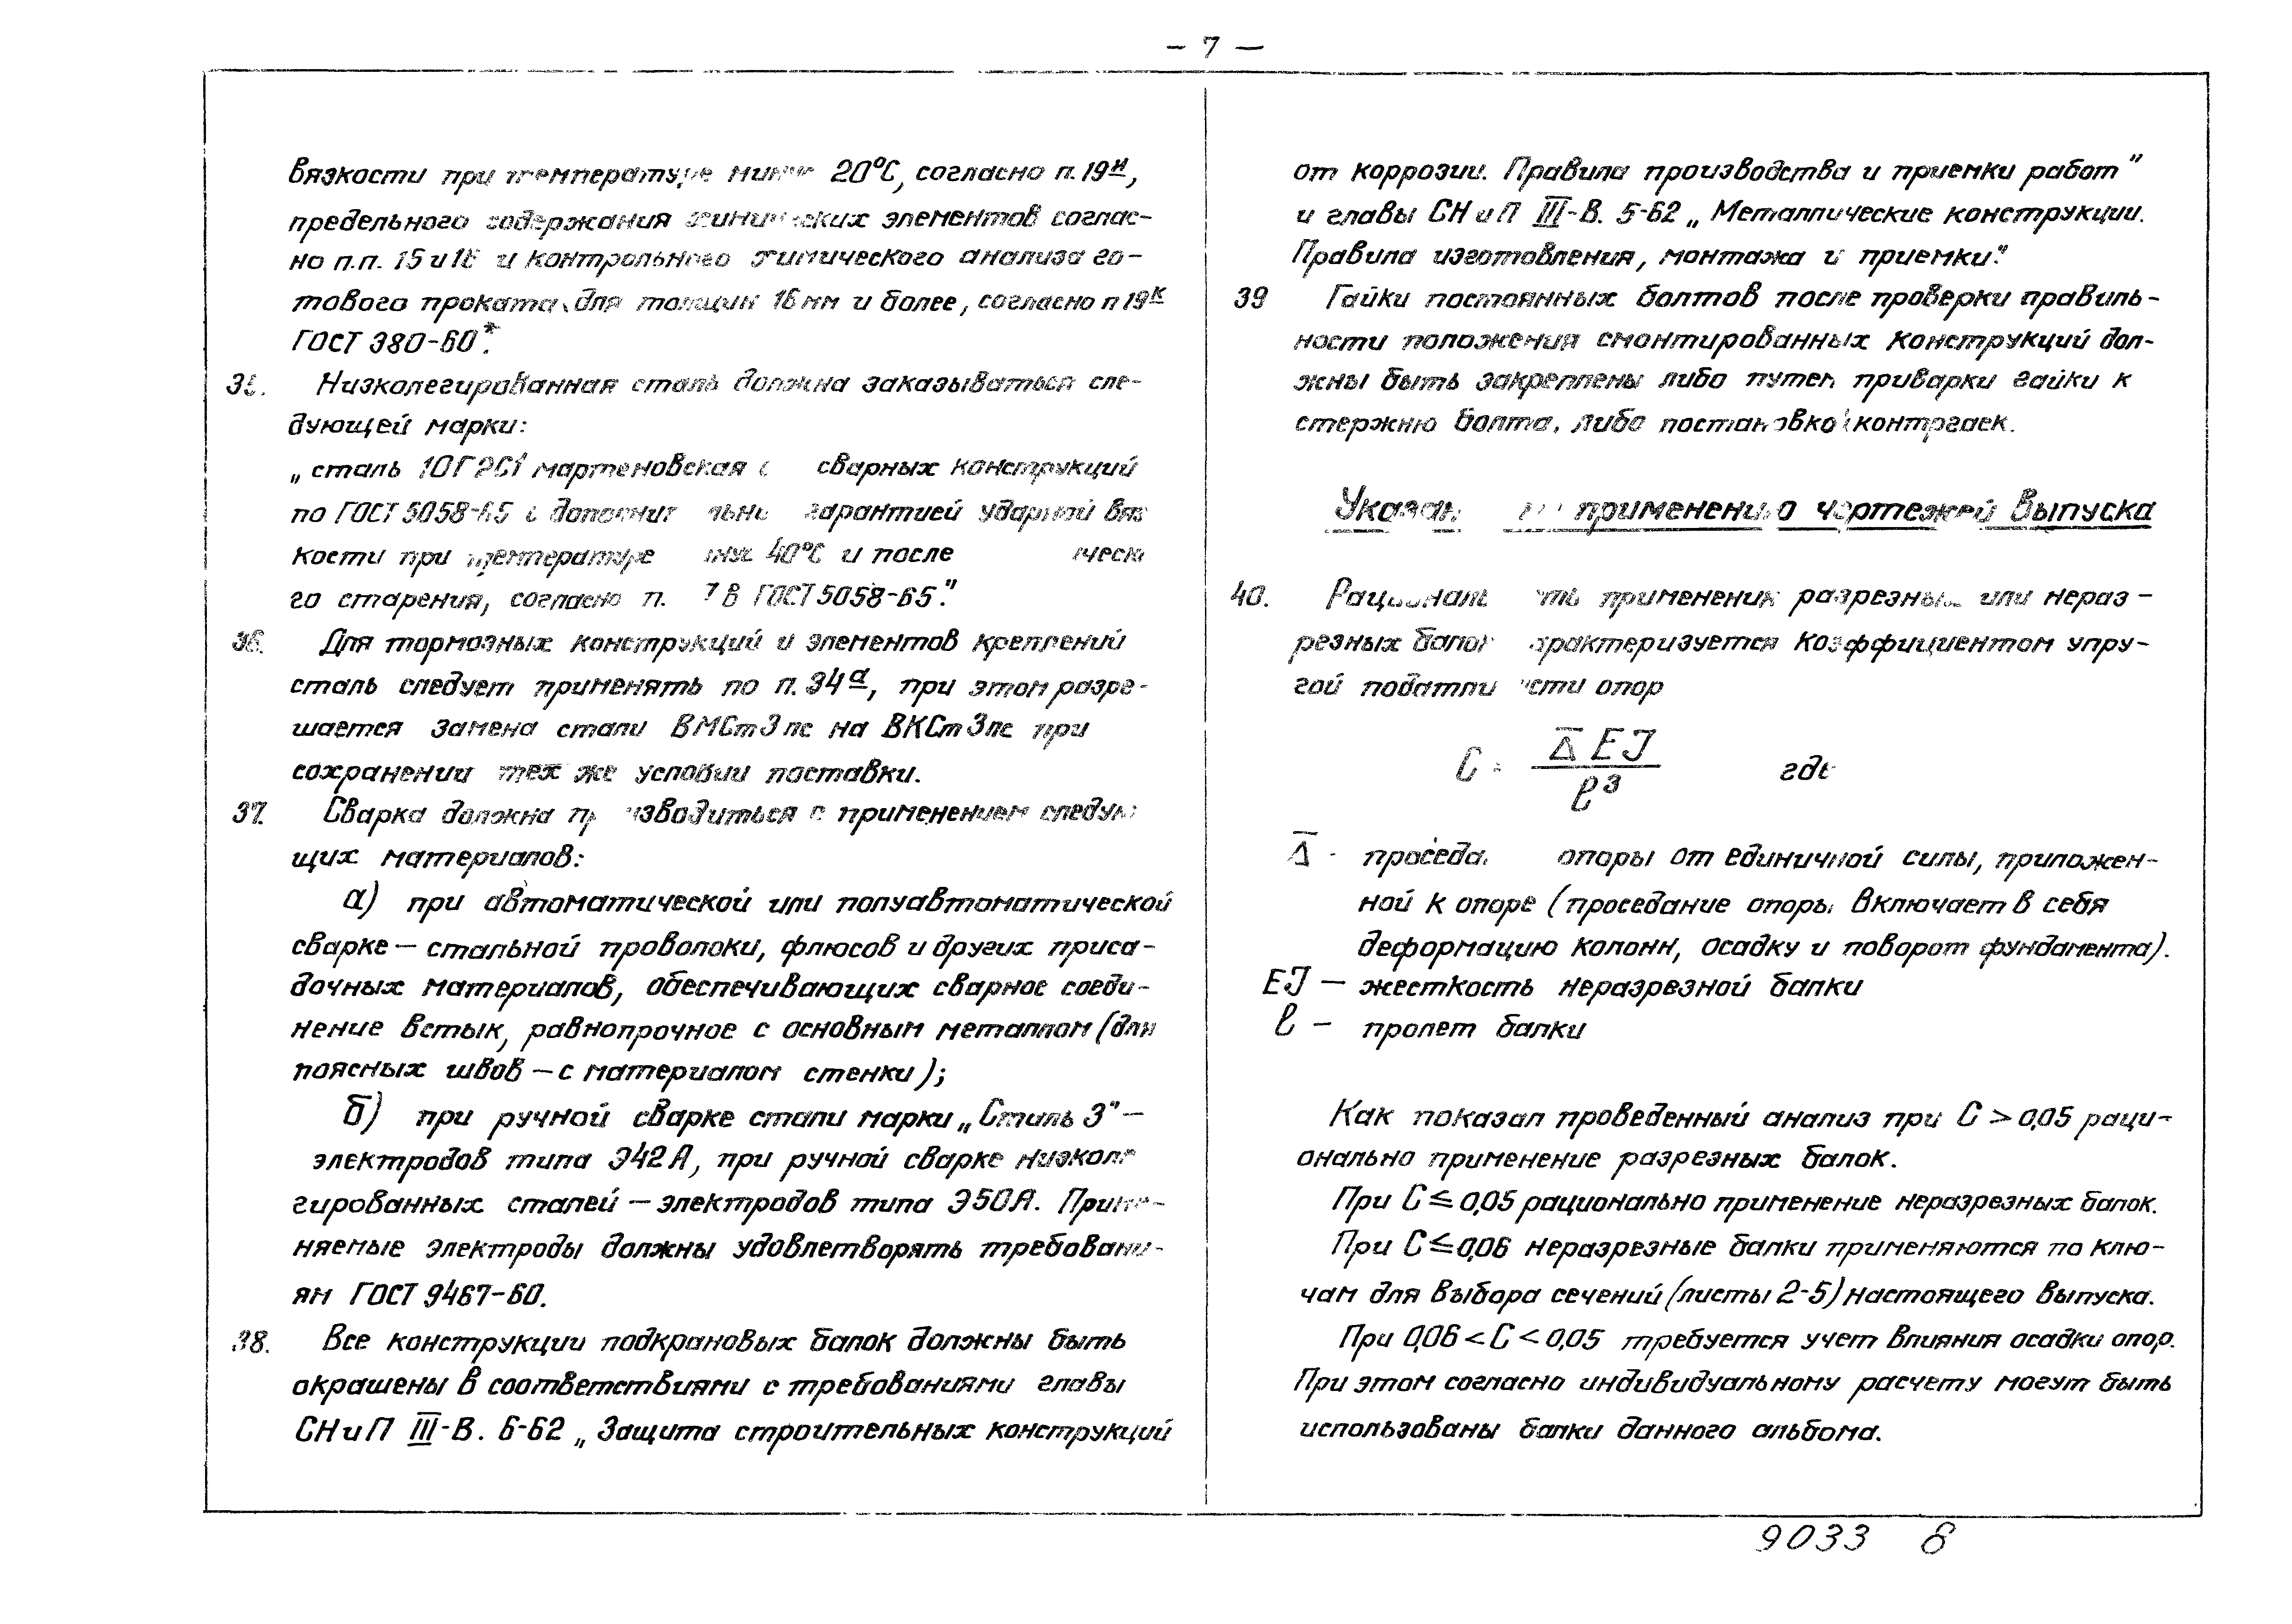 — 7 —
вязкости при температуре минус 20°С, согласно п. 19и,
предельного содержания химических элементов соглас-
но п.п. 15 и и контрольного химического анализа го-
тового проката, для толщин 16 мм и более, согласно п 19к
ГОСТ 380-60*.
Низколегированная сталь должна заказываться сле-
дующей марки:
„ сталь 10Г2С1 мартеновская сварных конструкций
по ГОСТ 5058-65 с гарантией ударной вяз
кости при температуре 40°С и после
го старения, согласно п. В ГОСТ 5058-65."
36. Для тормозных конструкций и элементов креплений
сталь следует применять по п. 34а, при этом разре-
шается замена стали ВМСт3пс на ВКСт3пс при
сохранении тех же условий поставки.
37. Сварка должна производиться с применением следую
щих материалов:
а) при автоматической или полуавтоматической
сварке — стальной проволоки, флюсов и других приса-
дочных материалов, обеспечивающих сварное соеди-
нение встык, равнопрочное с основным металлом (для
поясных швов — с материалом стенки);
б) при ручной сварке стали марки „Сталь 3" —
электродов типа Э42А, при ручной сварке низколе
гированных сталей — электродов типа Э50А. Приме-
няемые электроды должны удовлетворять требовани-
ям ГОСТ 9467-60.
38. Все конструкции подкрановых балок должны быть
окрашены в соответствиями с требованиями главы
СН и П III-В. 6-62 „ Защита строительных конструкций
от коррозии. Правила производства и приемки работ"
и главы СН и П III-В. 5-62 „ Металлические конструкции.
Правила изготовления, монтажа и приемки."
39 Гайки постоянных болтов после проверки правиль-
ности положения смонтированных конструкций дол-
жны быть закреплены либо путем приварки гайки к
стержню болта, либо постановкой контргаек.
по применению чертежей выпуска
40. Рациональность применения разрезных или нераз-
резных балок характеризуется коэффициентом упру-
гой податливости опор
C = Δ̄ EJ / ℓ³ где
Δ̄ - опоры от единичной силы, приложен-
ной к опоре (проседание опоры включает в себя
деформацию колонн, осадку и поворот фундамента).
EJ — жесткость неразрезной балки
ℓ — пролет балки
Как показал проведенный анализ при С > 0,05 раци-
онально применение разрезных балок.
При С ≤ 0,05 рационально применение неразрезных балок.
При С ≤ 0,06 неразрезные балки применяются по клю-
чам для выбора сечений (листы 2-5) настоящего выпуска.
При 0,06 < С < 0,05 требуется учет влияния осадки опор.
При этом согласно индивидуальному расчету могут быть
использованы балки данного альбома.
9033 8